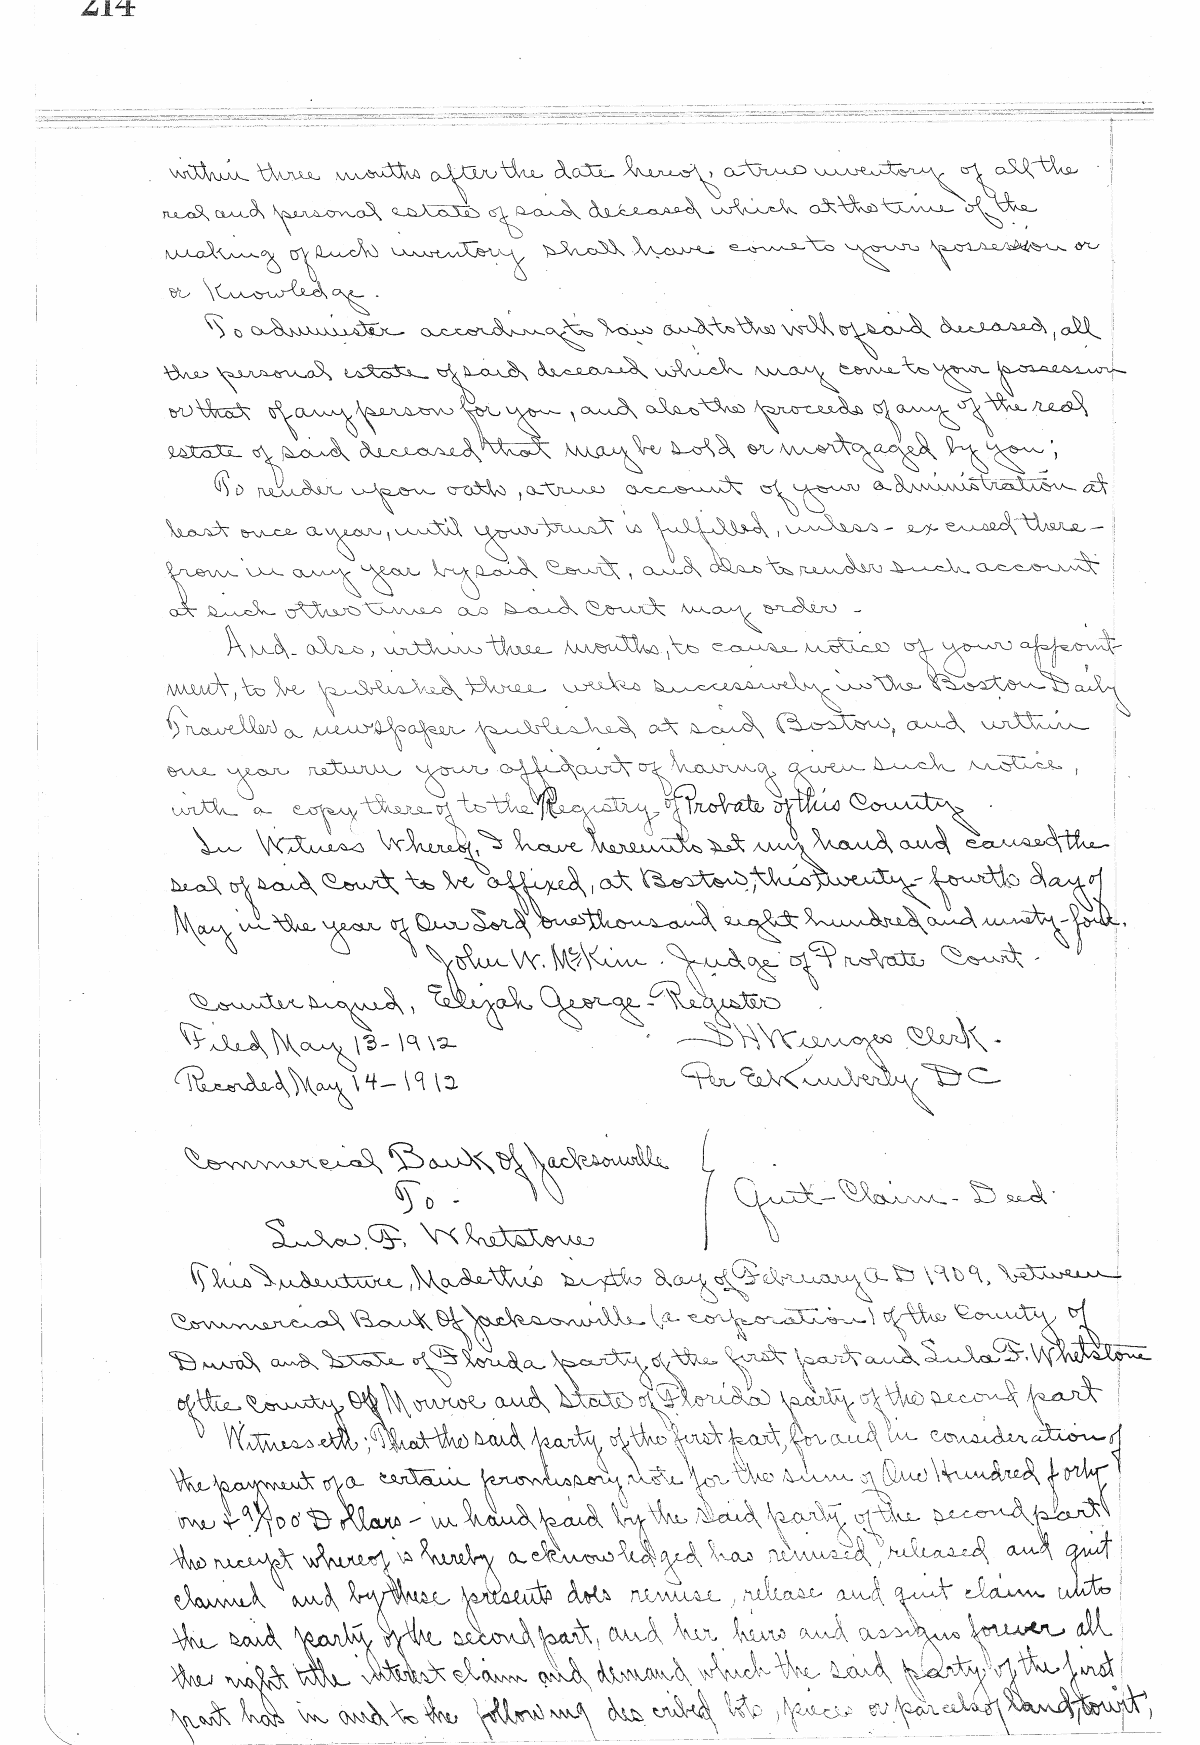 214
within three months after the date hereof, a true inventory of all the
real and personal estate of said deceased which at the time of the
making of such inventory shall have come to your possession or
or Knowledge.
To administer according to law and to the will of said deceased, all
the personal estate of said deceased which may come to your possession
or that of any person for you, and also the proceeds of any of the real
estate of said deceased that may be sold or mortgaged by you;
To render upon oath, a true account of your administration at
least once a year, until your trust is fulfilled, unless - excused there-
from in any year by said Court, and also to render such account
at such other times as said Court may order -
And also, within three months, to cause notice of your appoint-
ment, to be published three weeks successively in the Boston Daily
Traveller a newspaper published at said Boston, and within
one year return your affidavit of having given such notice,
with a copy thereof to the Registry of Probate of this County.
In Witness Whereof, I have hereunto set my hand and caused the
seal of said Court to be affixed, at Boston, this twenty-fourth day of
May in the year of Our Lord one thousand eight hundred and ninety-four.
John W. McKim. Judge of Probate Court.
Countersigned, Elijah George - Register
Filed May 13-1912
Recorded May 14-1912
Clerk.
Per E Kimberly D C
Commercial Bank of Jacksonville
To -
Lula F. Whetstone
Quit-Claim-Deed.
This Indenture, Made this sixth day of February A D 1909, between
Commercial Bank Of Jacksonville (a corporation) of the County of
Duval and State of Florida party of the first part and Lula F. Whetstone
of the County Of Monroe and State of Florida party of the second part
Witnesseth; That the said party of the first part, for and in consideration of
the payment of a certain promissory note for the sum of One Hundred forty
one & 91/100 Dollars - in hand paid by the said party of the second part
the receipt whereof is hereby acknowledged has remised, released and quit
claimed and by these presents does remise, release and quit claim unto
the said party of the second part, and her heirs and assigns forever all
the right title interest claim and demand which the said party of the first
part has in and to the following described lots, pieces or parcels of land, towit,